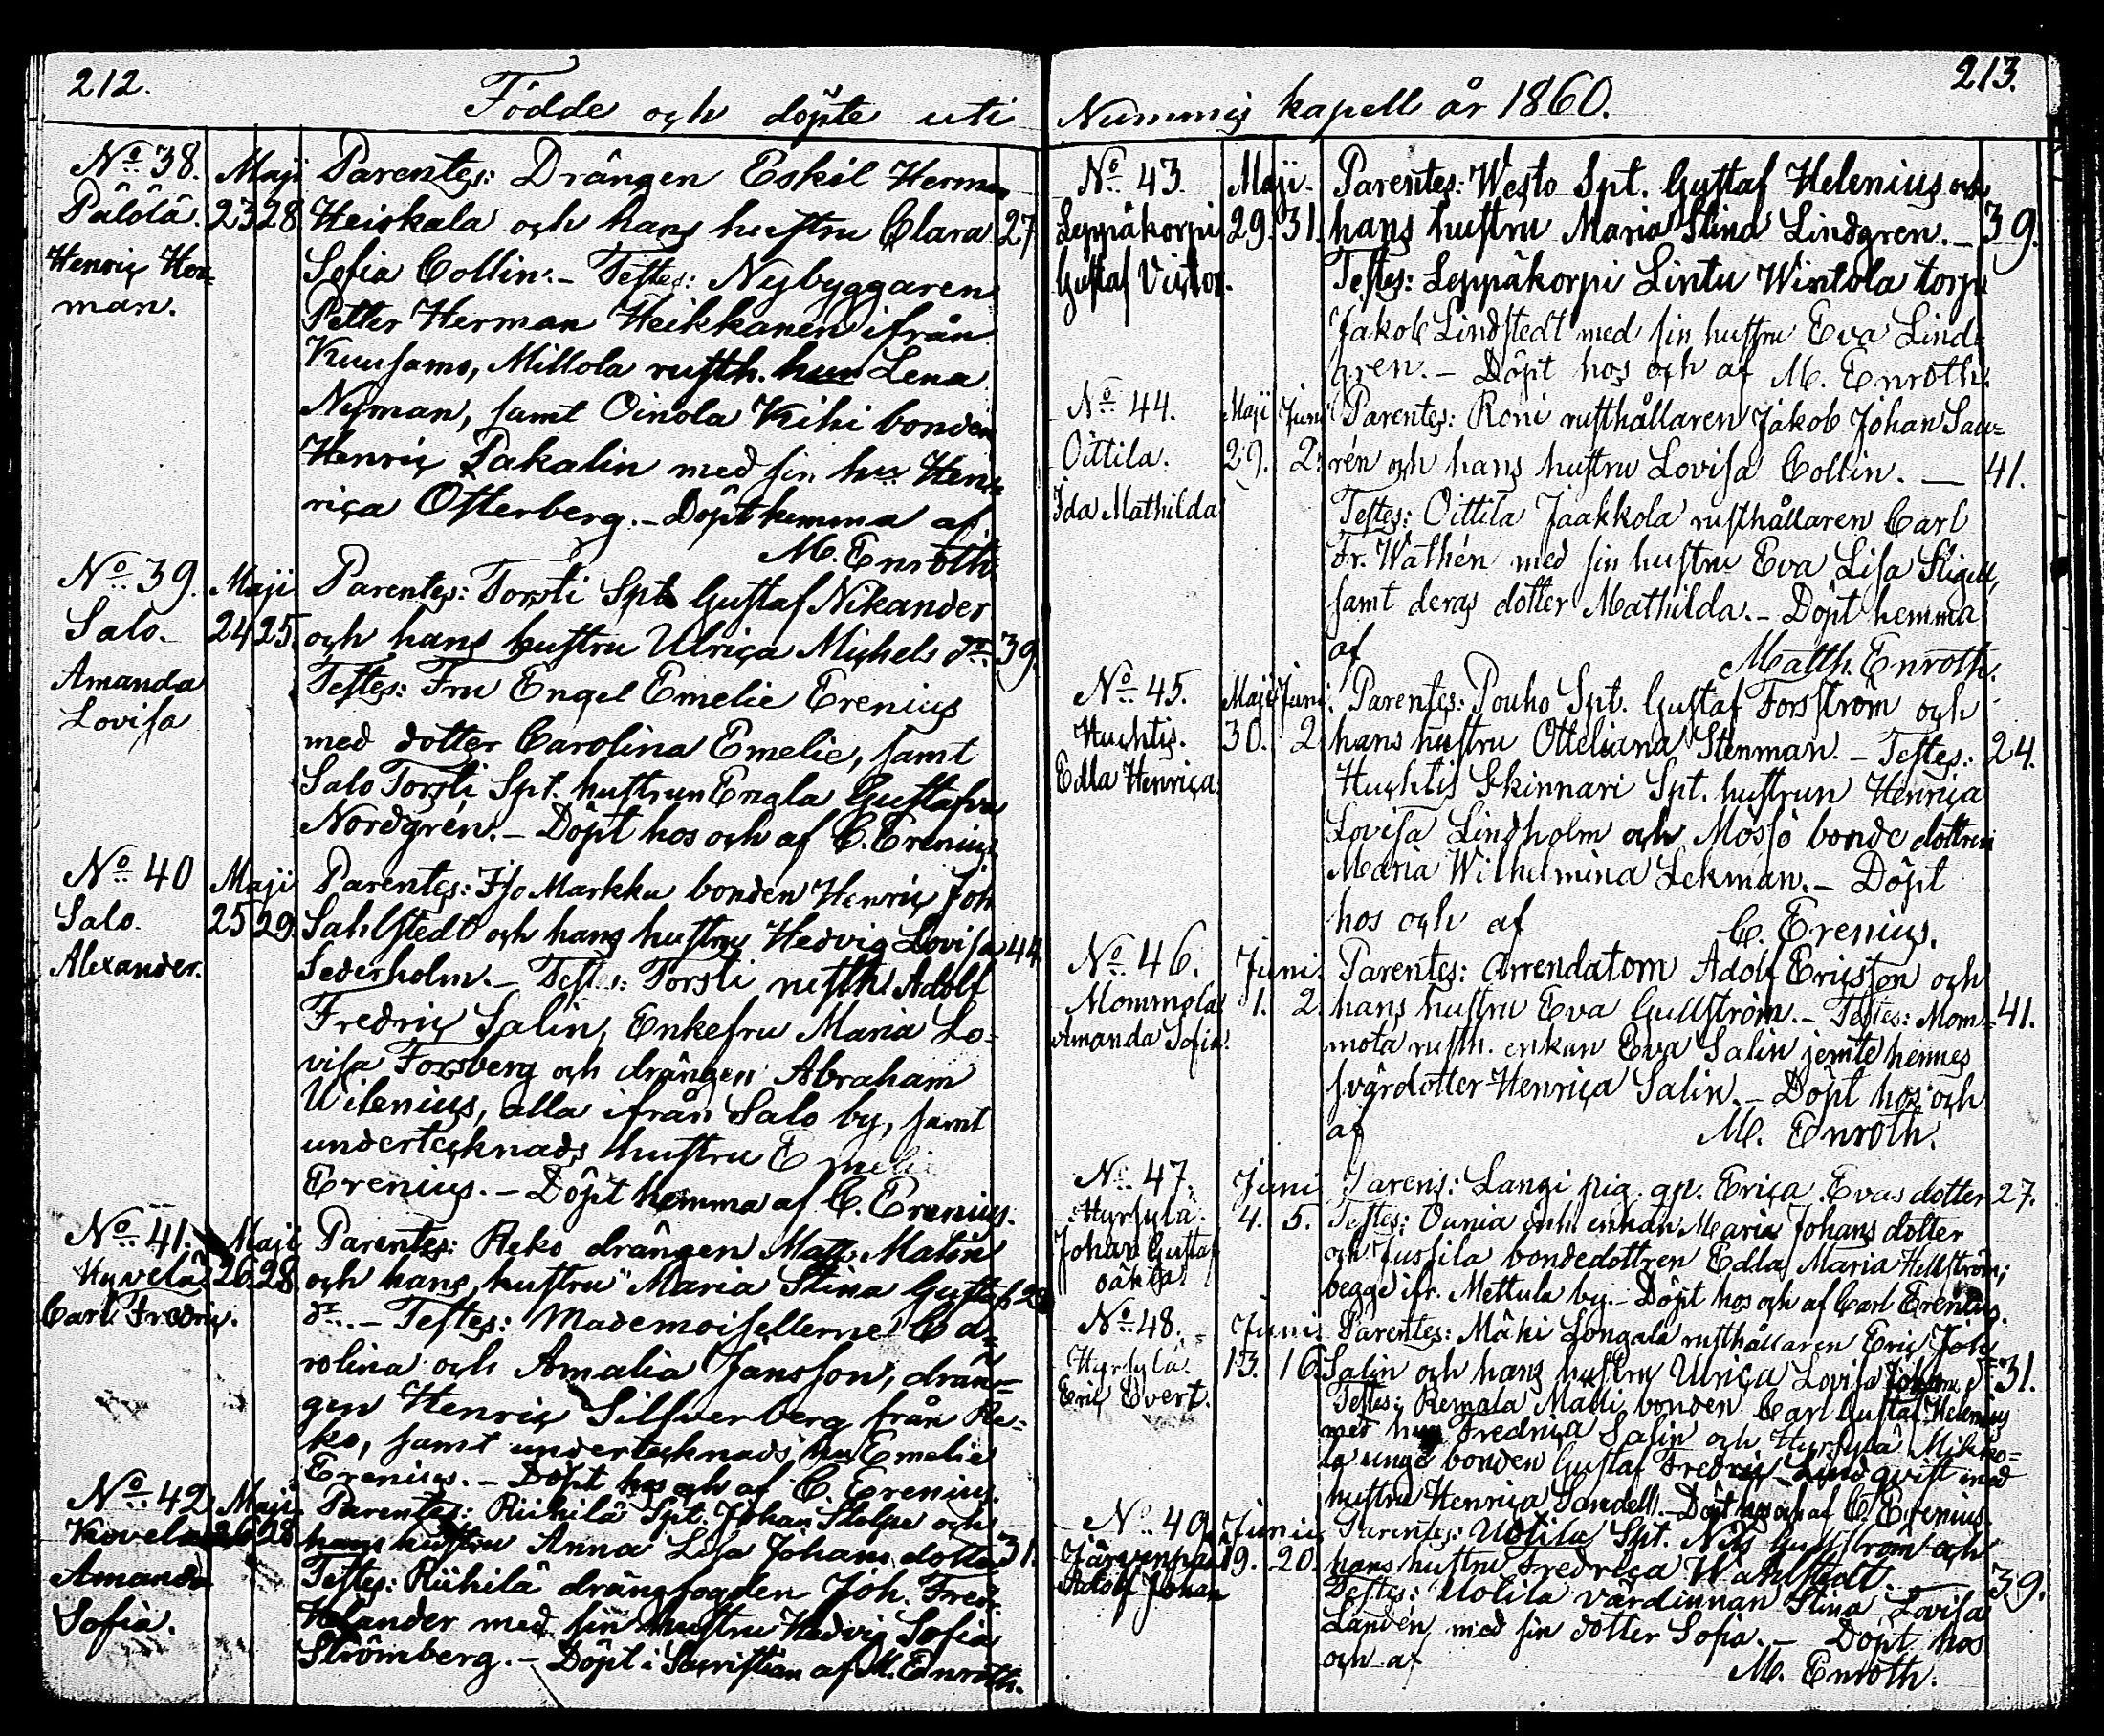 212.
Födde och döpte uti
No. 38. Maji Parentes: Drängen Eskil Herman
Pälölä. 23 28 Heiskala och hans hustru Clara 27
Henric Her=
man.
Sofia Collin. – Testes: Nybyggaren
Petter Herman Heikkanen ifrån
Kuusamo, Millola rusth. hus Lena
Nyman, samt Oinola Kihi bonden
Henric Pakalin med sin hus Hen=
rica Österberg. – Döpt hemma af
M. Enroth.
No. 39. Maji Parentes: Torsti Spt. Gustaf Nikander
Salo. 24 25. och hans hustru Ulrica Michels dr. 39.
Amanda
Lovisa
Testes: Fru Engel Emelie Erenius
med dotter Carolina Emelie, samt
Salo Torsti Spt. hustrun Engla
Nordgrén. – Döpt hos och af C. Erenius.
No. 40 Maji Parentes: Iso Markku bonden Henric Joh
Salo. 25 29. Sahlstedt och hans hustru Hedvig Lovisa 44.
Alexander.
Sederholm. – Testes: Torsti rusth. Adolf
Fredric Salin, Enkefru Maria Lo=
visa Forsberg och drängen Abraham
Wilenius, alla ifrån Salo by, samt
undertecknads hustru Emeli
Erenius. – Döpt hemma af C. Erenius.
No. 41. Maji Parentes: Reko drängen Matts Malin
Hyvelä 26 28 och hans hustru Maria Stina Gustafs
Carl Fredric.
dr. – Testes: Mademoisellerne Ca=
rolina och Amalia Jansson, drän=
gen Henric Silfverberg från Re=
ko, samt undertecknads hus Emelie
Erenius. – Döpt hos och af C. Erenius.
No. 42 Maji Parentes: Riihilä Spt. Johan Stolpe och
26 28 hans hustru Anna Lisa Johans dotter 31.
Amanda
Sofia.
Testes: Riihilä drängfogden Joh. Fredr.
Helander med sin hustru Hedvig Sofia
Strömberg. – Döpt i Sacristian af M. Enroth.
213.
Nummis kapell år 1860.
No. 43. Maji. Parentes: Westo Spt. Gustaf Helenius och
Leppäkorpi 29. 31. hans hustru Maria Stina Lindgren. – 39.
Gustaf Victor.
Testes: Leppäkorpi Lintu Wintola torp.
Jakob Lindstedt med sin hustru Eva Lind=
gren. – Döpt hos och af M. Enroth.
No. 44. Maji Juni Parentes: Roni rusthållaren Jakob Johan Sau=
Oittila. 29. 2. rén och hans hustru Lovisa Collin. — 41.
Ida Mathilda
Testes: Oittila Jaakkola rusthållaren Carl
Fr. Wathén med sin hustru Eva Lisa Stigell,
samt deras dotter Mathilda. – Döpt hemma
af Matth. Enroth.
No. 45. Maji Juni. Parentes: Pouho Spt. Gustaf Forsström och
Huhtis. 30. 2. hans hustru Otteliana Stenman. – Testes: 24.
Edla Henrica
Huhtis Skinnari Spt. hustrun Henrica
Lovisa Lindholm och Mössö bonde dottren
Maria Wilhelmina Lekman. – Döpt
hos och af C. Erenius.
No. 46. Juni. Parentes: Arrendatorn Adolf Ericsson och
Mommola 1. 2. hans hustru Eva Gullström. – Testes: Mom= 41.
Amanda Sofia.
mola rusth. enkan Eva Salin jemte hennes
svärdotter Henrica Salin. – Döpt hos och
af M. Enroth.
No. 47. Juni Parens: Langi pig. qp. Erica Evas dotter 27.
Hyrsylä. 4. 5. Testes: Ounia enkan Maria Johans dotter
Johan Gustaf
oäkta.
och Jussila bondedottren Edla Maria Hellström;
begge ifr. Mettula by. – Döpt hos och af Carl Erenius.
No. 48. Juni. Parentes: Mäki Longala rusthållaren Eric Joh.
Hyrsylä. 13. 16. Salin och hans hustru Ulrica Lovisa Johans d. 31.
Eric Evert.
Testes: Remala Matti bonden Carl Gustaf Helenius
med hus Fredrica Salin och Hyrsylä Mikko=
la unge bonden Gustaf Fredric Lindqvist med
hustru Henrica Sandell. – Döpt hos och af C. Erenius.
No. 49. Junii Parentes: Uotila Spt. Nils Gullström och
Järvenpää 19. 20. hans hustru Fredrica Wahlstedt. — 39.
Adolf Johan
Testes: Uotila värdinnan Stina Lovisa
Landén med sin dotter Sofia. – Döpt hos
och af M. Enroth.